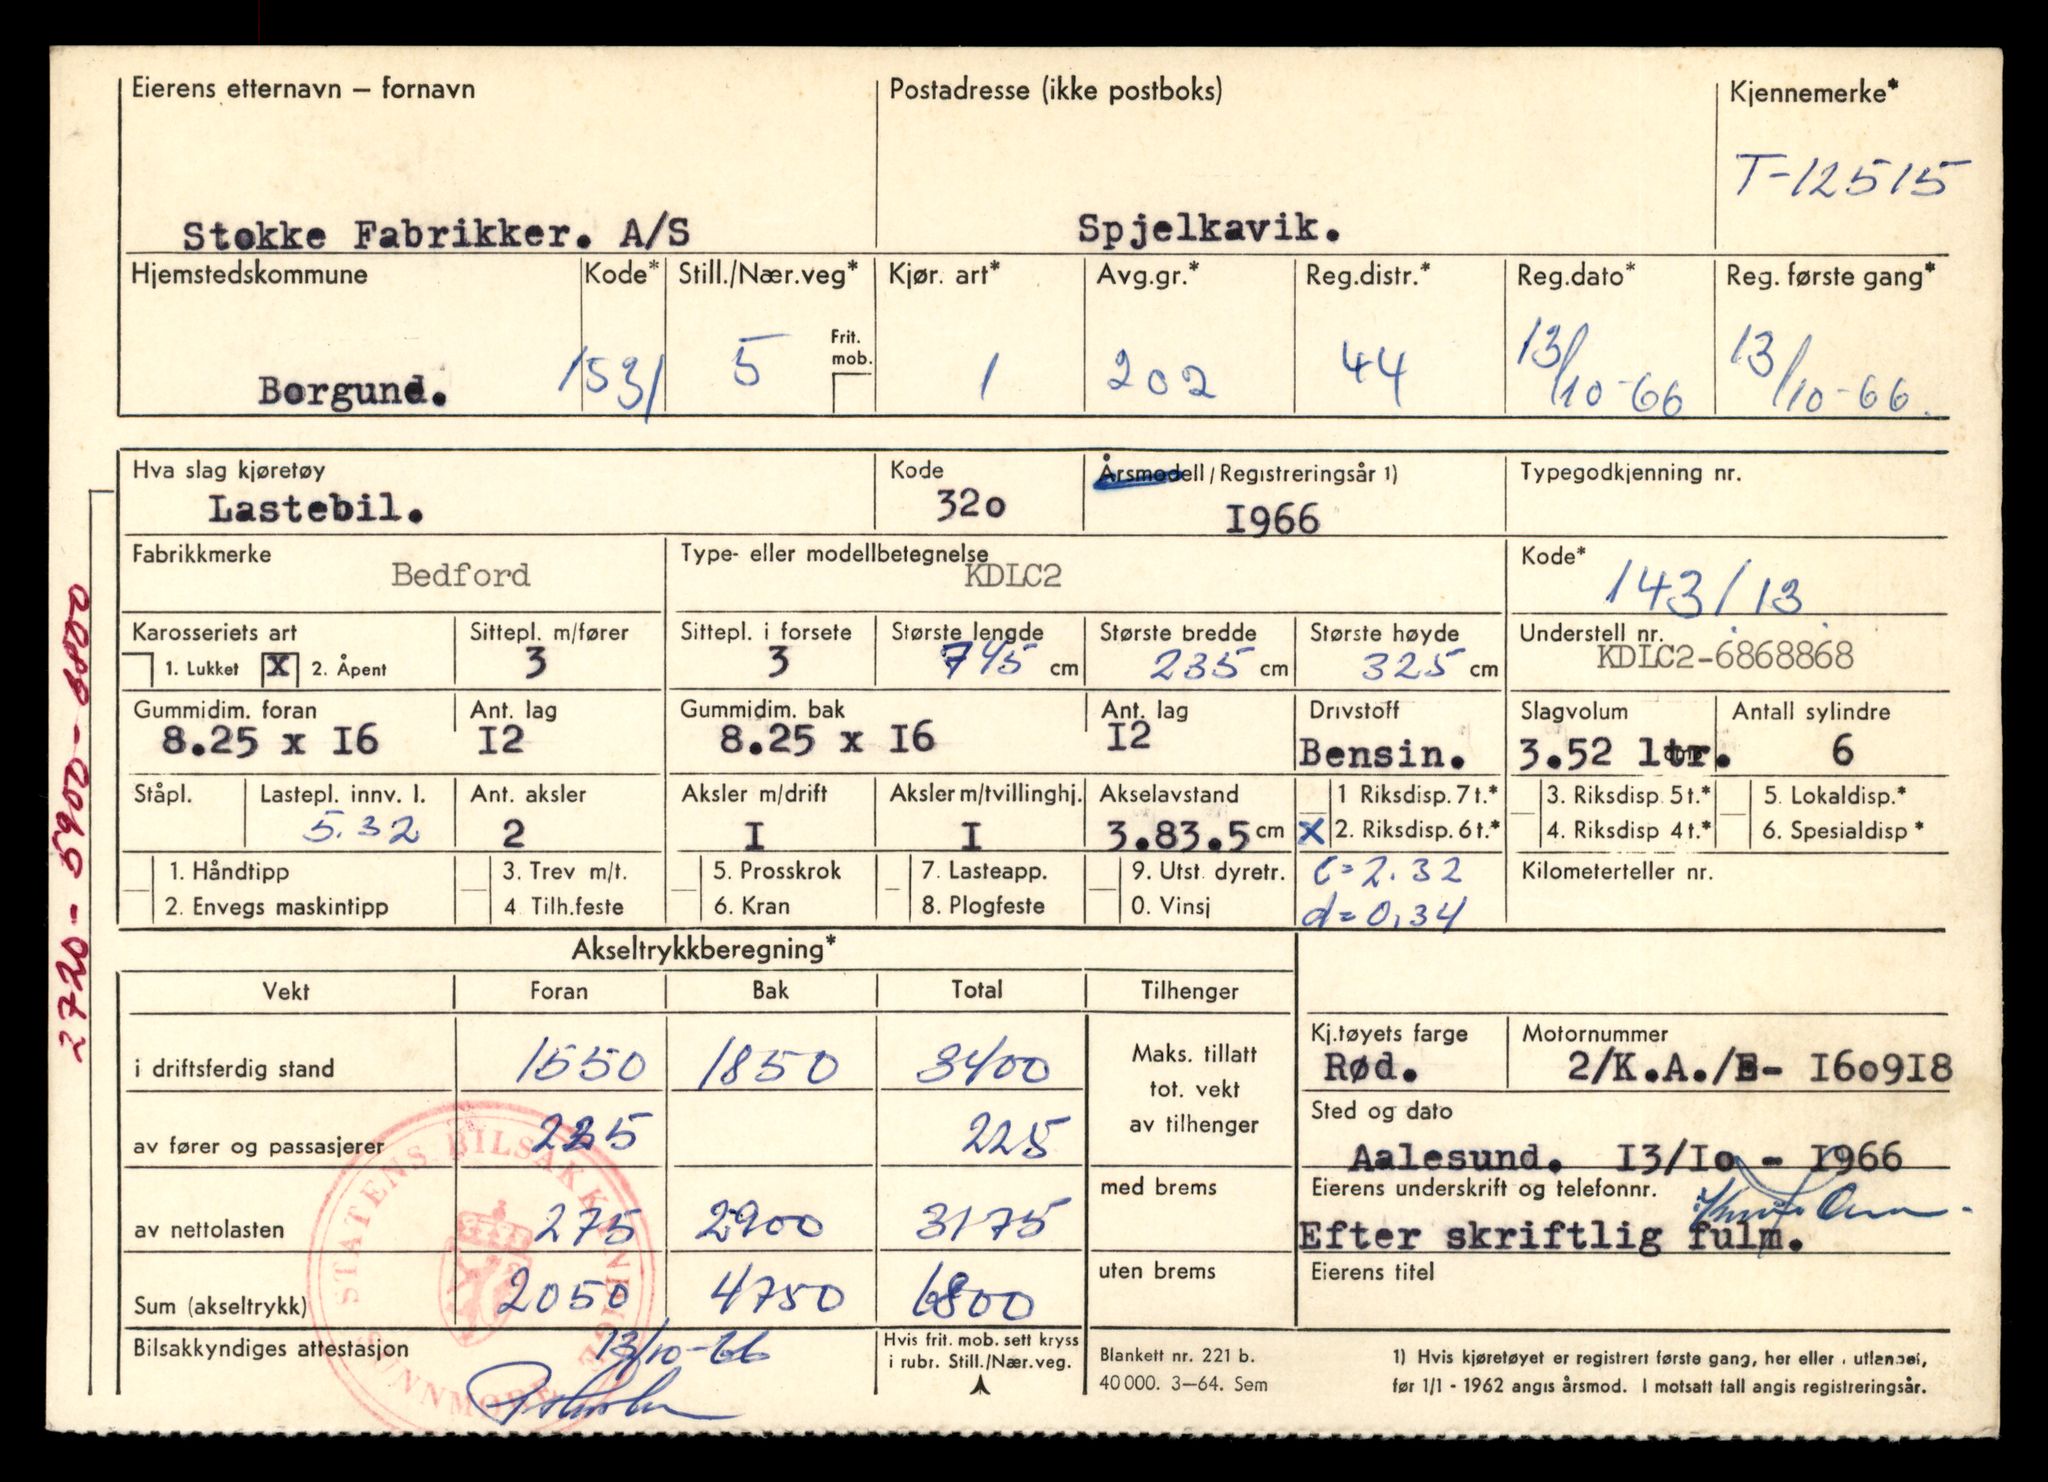 Eierens etternavn – fornavn
Postadresse (ikke postboks)
Kjennemerke*
T-12515
Stokke Fabrikker. A/S
Spjelkavik.
Hjemstedskommune
Kode*
Still./Nær.veg*
Kjør. art*
Avg.gr.*
Reg.distr.*
Reg.dato*
Reg. første gang*
Borgund.
1531
5
Frit. mob.
1
202
44
13/10-66
13/10-66.
Hva slag kjøretøy
Lastebil.
Kode
320
Årsmodell / Registreringsår 1)
I966
Typegodkjenning nr.
Fabrikkmerke
Bedford
Type- eller modellbetegnelse
KDLC2
Kode*
143/13
Karosseriets art
1. Lukket X 2. Åpent
Sittepl. m/fører
3
Sittepl. i forsete
3
Største lengde
745 cm
Største bredde
235 cm
Største høyde
325 cm
Understell nr.
KDLC2-6868868
Gummidim. foran
8.25 x I6
Ant. lag
I2
Gummidim. bak
8.25 x I6
Ant. lag
I2
Drivstoff
Bensin.
Slagvolum
3.52 ltr.
Antall sylindre
6
Ståpl.
Lastepl. innv. l.
5.32
Ant. aksler
2
Aksler m/drift
I
Aksler m/tvillinghj.
I
Akselavstand
3.83.5 cm
1 Riksdisp. 7 t.*
X 2. Riksdisp. 6 t.*
3. Riksdisp 5 t.*
4. Riksdisp 4 t.*
5. Lokaldisp.*
6. Spesialdisp *
1. Håndtipp
2. Envegs maskintipp
3. Trev m/t.
4 Tilh.feste
5. Prosskrok
6. Kran
7. Lasteapp.
8. Plogfeste
9. Utst. dyretr.
0. Vinsj
c=2.32
d=0,34
Kilometerteller nr.
2720 - 5900 - 6800
Akseltrykkberegning*
Vekt
Foran
Bak
Total
Tilhenger
i driftsferdig stand
1550
1850
3400
av fører og passasjerer
225
225
av nettolasten
275
2900
3175
Sum (akseltrykk)
2050
4750
6800
Maks. tillatt
tot. vekt
av tilhenger
med brems
uten brems
Kj.tøyets farge
Rød.
Motornummer
2/K.A./E- I609I8
Sted og dato
Aalesund. I3/Io - I966
Eierens underskrift og telefonnr.
Efter skriftlig fulm.
Eierens titel
Bilsakkyndiges attestasjon
13/10-66
STATENS BILSAKKYNDIGE
SUNNMØRE
Hvis frit. mob. sett kryss
i rubr. Still./Nær.veg.
Blankett nr. 221 b.
40 000. 3–64. Sem
1) Hvis kjøretøyet er registrert første gang, her eller i utlandet,
før 1/1 - 1962 angis årsmod. I motsatt fall angis registreringsår.